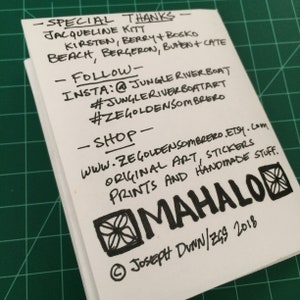 - SPECIAL THANKS -
JACQUELINE KITT
KIRSTEN, BERRY + BOSKO
BEACH, BERGERON, BUTEN + CATE
- FOLLOW -
INSTA: @JUNGLERIVERBOAT
#JUNGLERIVERBOATART
#ZEGOLDENSOMBRERO
- SHOP -
WWW.ZEGOLDENSOMBRERO.ETSY.COM
ORIGINAL ART, STICKERS
PRINTS AND HANDMADE STUFF.
MAHALO
© JOSEPH DUNN/ZGS 2018